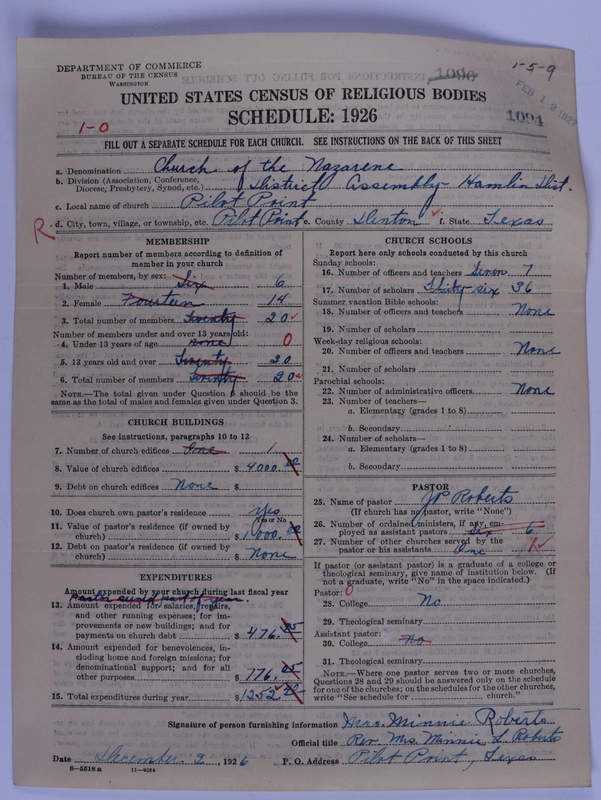 DEPARTMENT OF COMMERCE
BUREAU OF THE CENSUS
WASHINGTON
1096
1-5-9
FEB 12 1927
UNITED STATES CENSUS OF RELIGIOUS BODIES
SCHEDULE: 1926
1094
1-0
FILL OUT A SEPARATE SCHEDULE FOR EACH CHURCH. SEE INSTRUCTIONS ON THE BACK OF THIS SHEET
a. Denomination Church of the Nazarene
b. Division (Association, Conference, Diocese, Presbytery, Synod, etc.) District Assembly - Hamlin Dist.
c. Local name of church Pilot Point
R d. City, town, village, or township, etc. Pilot Point e. County Denton f. State Texas
MEMBERSHIP
Report number of members according to definition of
member in your church
Number of members, by sex:
1. Male Six 6
2. Female Fourteen 14
3. Total number of members Twenty 20
Number of members under and over 13 years old:
4. Under 13 years of age none 0
5. 13 years old and over Twenty 20
6. Total number of members Twenty 20
NOTE.—The total given under Question 6 should be the
same as the total of males and females given under Question 3.
CHURCH BUILDINGS
See instructions, paragraphs 10 to 12
7. Number of church edifices One 1
8. Value of church edifices $ 4000.00
9. Debt on church edifices None $
10. Does church own pastor's residence Yes
Yes or No
11. Value of pastor's residence (if owned by
church) $ 1,000.00
12. Debt on pastor's residence (if owned by
church) $ None
EXPENDITURES
Amount expended by your church during last fiscal year
Pastor served part of year.
13. Amount expended for salaries, repairs,
and other running expenses; for im-
provements or new buildings; and for
payments on church debt $ 476.
14. Amount expended for benevolences, in-
cluding home and foreign missions; for
denominational support; and for all
other purposes $ 776.
15. Total expenditures during year $ 1252
CHURCH SCHOOLS
Report here only schools conducted by this church
Sunday schools:
16. Number of officers and teachers Seven 7
17. Number of scholars Thirty six 36
Summer vacation Bible schools:
18. Number of officers and teachers None
19. Number of scholars
Week-day religious schools:
20. Number of officers and teachers None
21. Number of scholars
Parochial schools:
22. Number of administrative officers None
23. Number of teachers—
a. Elementary (grades 1 to 8)
b. Secondary
24. Number of scholars—
a. Elementary (grades 1 to 8)
b. Secondary
PASTOR
25. Name of pastor J P Roberts
(If church has no pastor, write "None")
26. Number of ordained ministers, if any, em-
ployed as assistant pastors Six 6
27. Number of other churches served by the
pastor or his assistants One 1
If pastor (or assistant pastor) is a graduate of a college or
theological seminary, give name of institution below. (If
not a graduate, write "No" in the space indicated.)
Pastor: 0
28. College No
29. Theological seminary
Assistant pastor:
30. College No
31. Theological seminary
NOTE.—Where one pastor serves two or more churches,
Questions 28 and 29 should be answered only on the schedule
for one of the churches; on the schedules for the other churches,
write "See schedule for church."
Signature of person furnishing information Mrs. Minnie Roberts
Official title Rev. Mrs. Minnie L. Roberts
Date December 2, 1926 P. O. Address Pilot Point, Texas
8—5518 a 11—9264